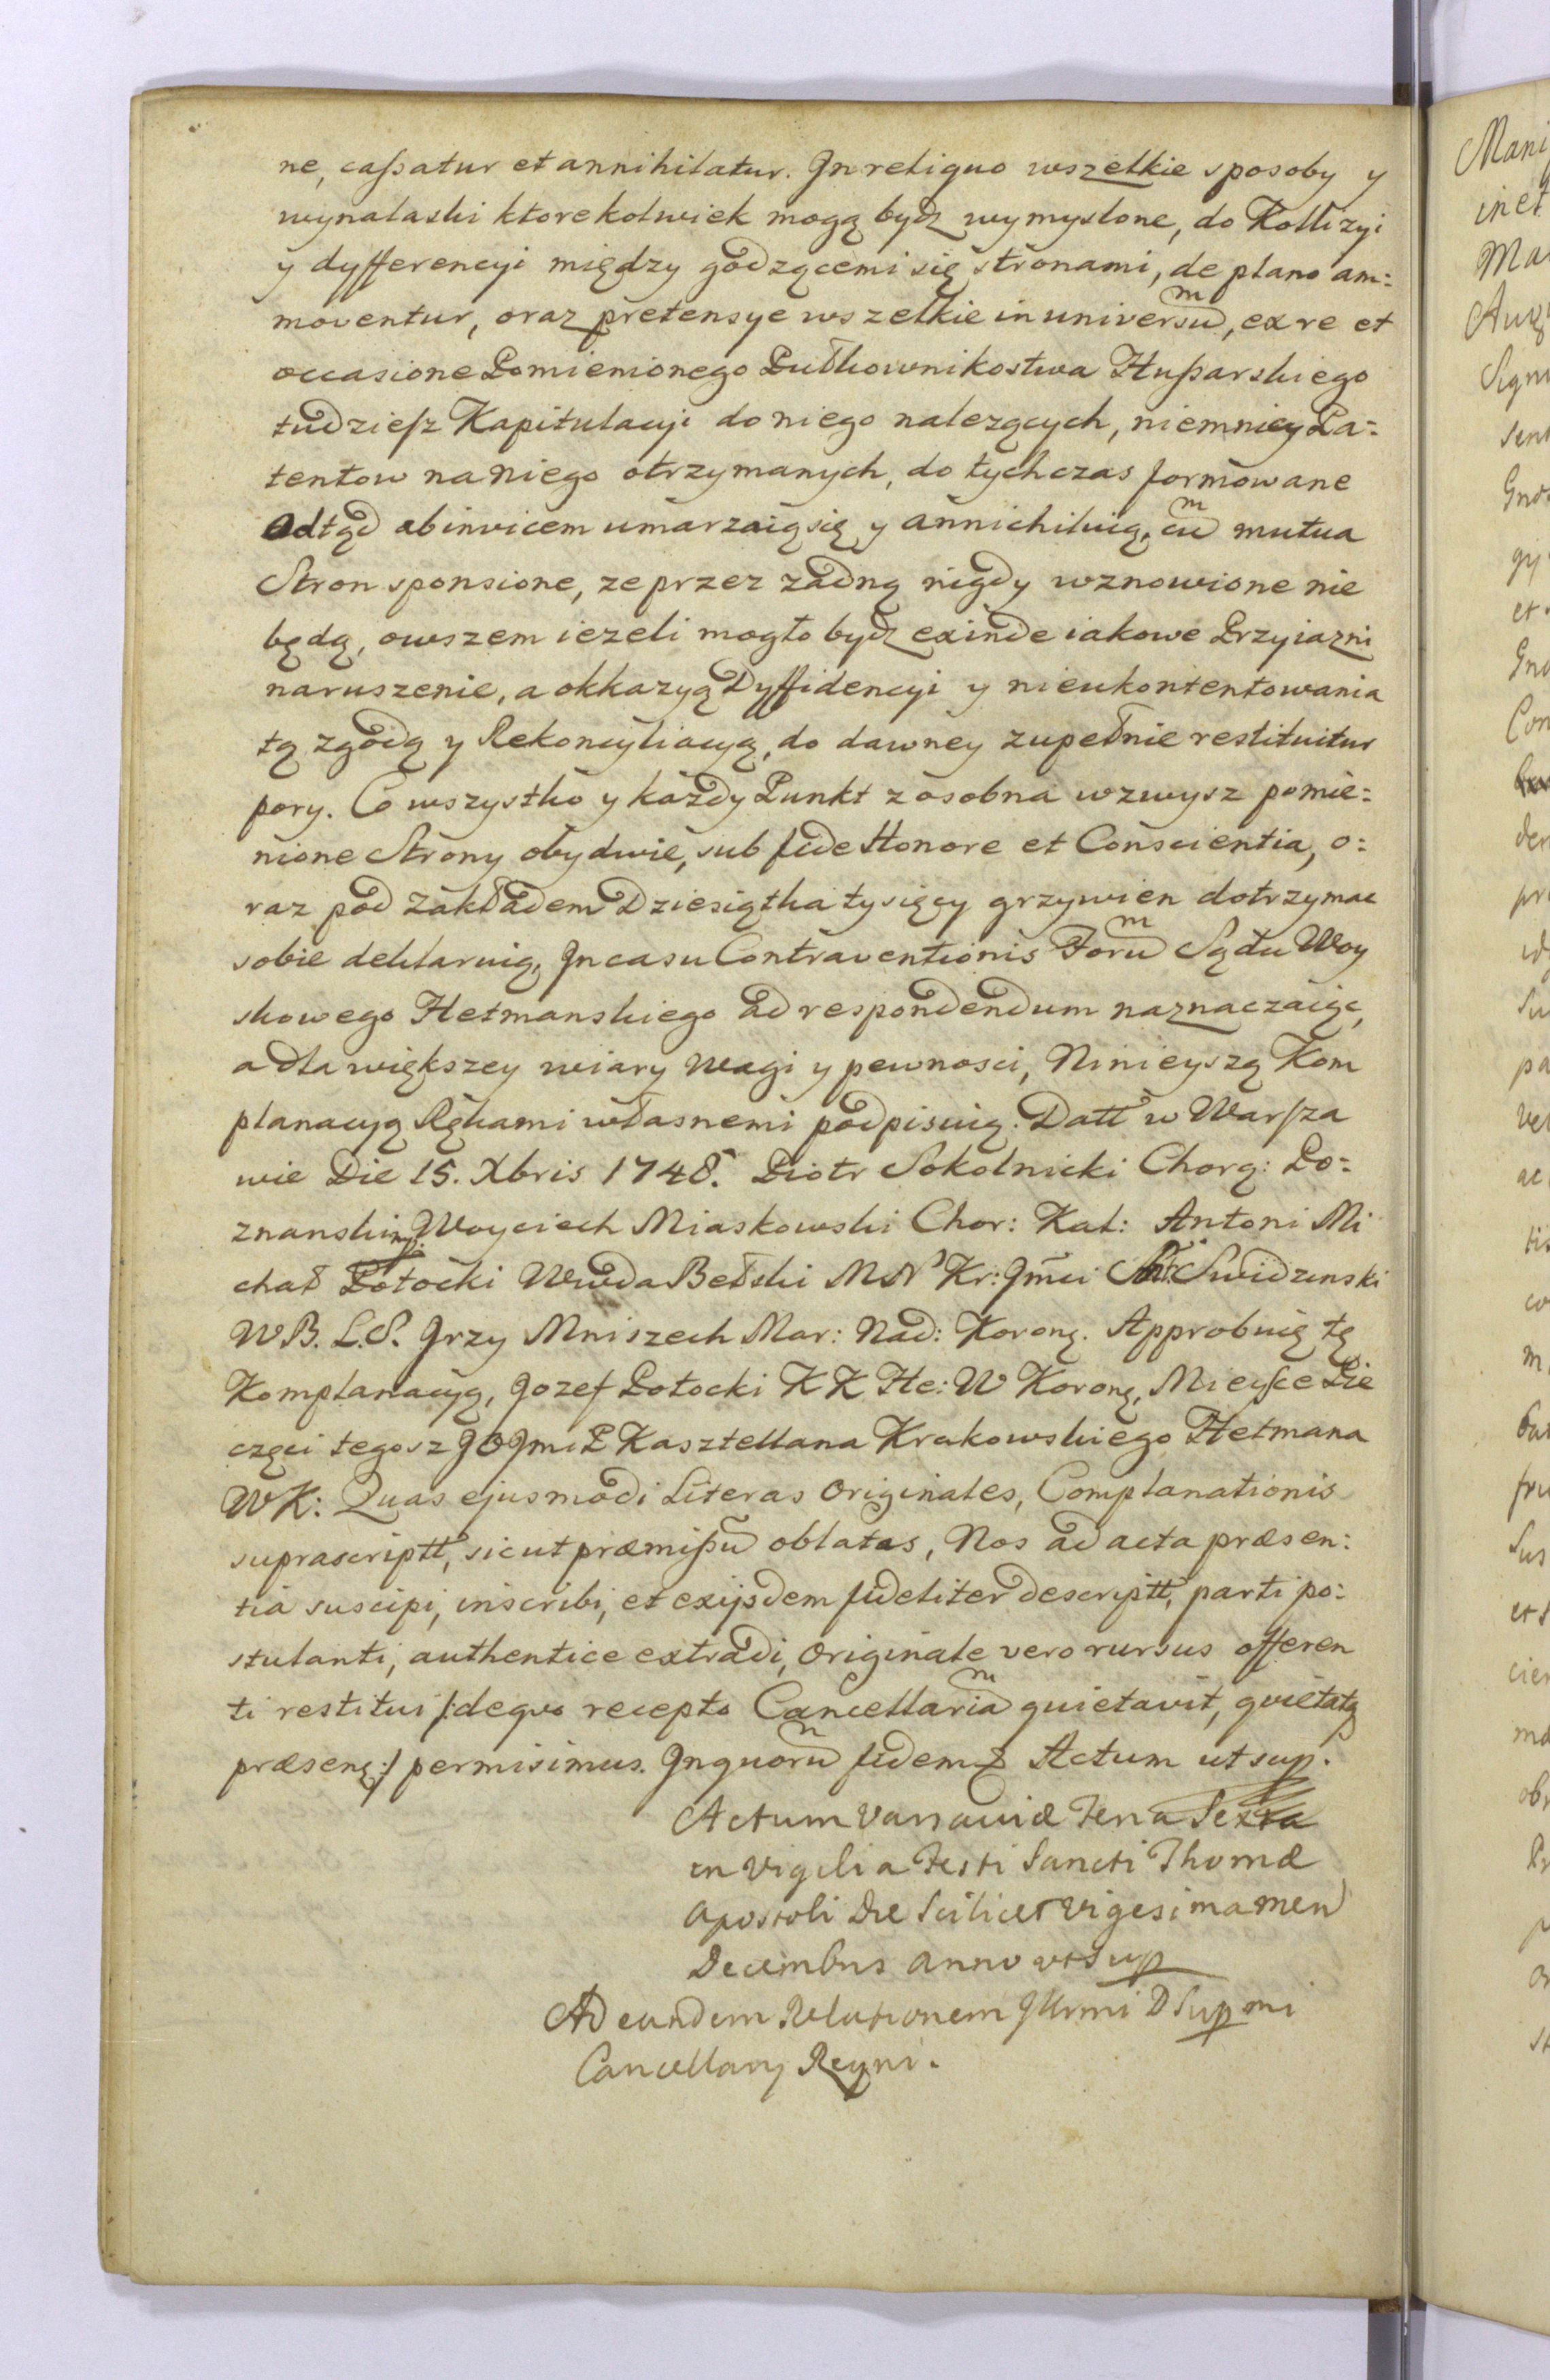 ne, cassatur et annihilatur. In reliquo wszelkie sposoby y
wynalaski ktorekolwiek mogą bydz wymyslone, do Kollizyi
y dyfferencyi między godzącemi się stronami, de plano am:
moventur, oraz pretensye wszelkie in universum, ex re et
occasione Pomienionego Pułkownikostwa Hussarskiego
tudziesz Kapitulacyi do niego nalezących, niemniey Pa:
tentow na niego otrzymanych, do tychczas formowane
odtąd ab invicem umarzaią się y annichiluią, cum mutua
Stron sponsione, ze przez zadną nigdy wznowione nie
będą, owszem iezeli mogło bydz exinde iakowe Przyiazni
naruszenie, a okkazyą Dyffidencyi y nieukontentowania
tą zgodą y Rekoncyliacyą, do dawney zupełnie restituitur
pory. Co wszystko y kazdy Punkt z osobna wzwysz pomie:
nione Strony obydwie, sub fide Honore et Conscientia, o:
raz pod zakładem Dziesiątka tysięcy grzywien dotrzymac
sobie deklaruią, In casu Contraventionis Forum Sądu Woy
skowego Hetmanskiego ad respondendum naznaczaiąc,
a dla większey wiary wagi y pewnosci, Ninieyszą Kom
planacyą Rękami własnemi podpisuią. Datt w Warsza
wie Die 15. Xbris 1748. Piotr Sokolnicki Chorą: Po:
znanski mp. Woyciech Miaskowski Chor: Kal: Antoni Mi
chał Potocki Wwda Bełski MN Kr: Jmci Swidzinski
WB. L.S. Jrzy Mniszech Mar: Nad: Koroną. Approbuię tę
Komplanacyą, Jozef Potocki KK He: W Koroną, Mieysce Pie
częci tegosz JOJmi P Kasztellana Krakowskiego Hetmana
WK: Quas ejusmodi Literas Originales, Complanationis
suprascriptt, sicut præmissũ oblatas, Nos ad acta præsen:
tia suscipi, inscribi, et exijsdem fideliter descriptt, parti po:
stulanti, authentice extradi, Originale vero rursus offeren
ti restitui /: de quo recepto Cancellariam quietavit, quietatq
præsenq :/ permisimus. In quorum fidem Actum ut sup.
Actum Varsaviæ Feria Sexta
in Vigilia Festi Sancti Thomæ
Apostoli Die Scilicet Vigesima Men
Decembris Anno ut Sup
Ad eundem Relationem Illrmi D Supmi
Cancellarij Regni.